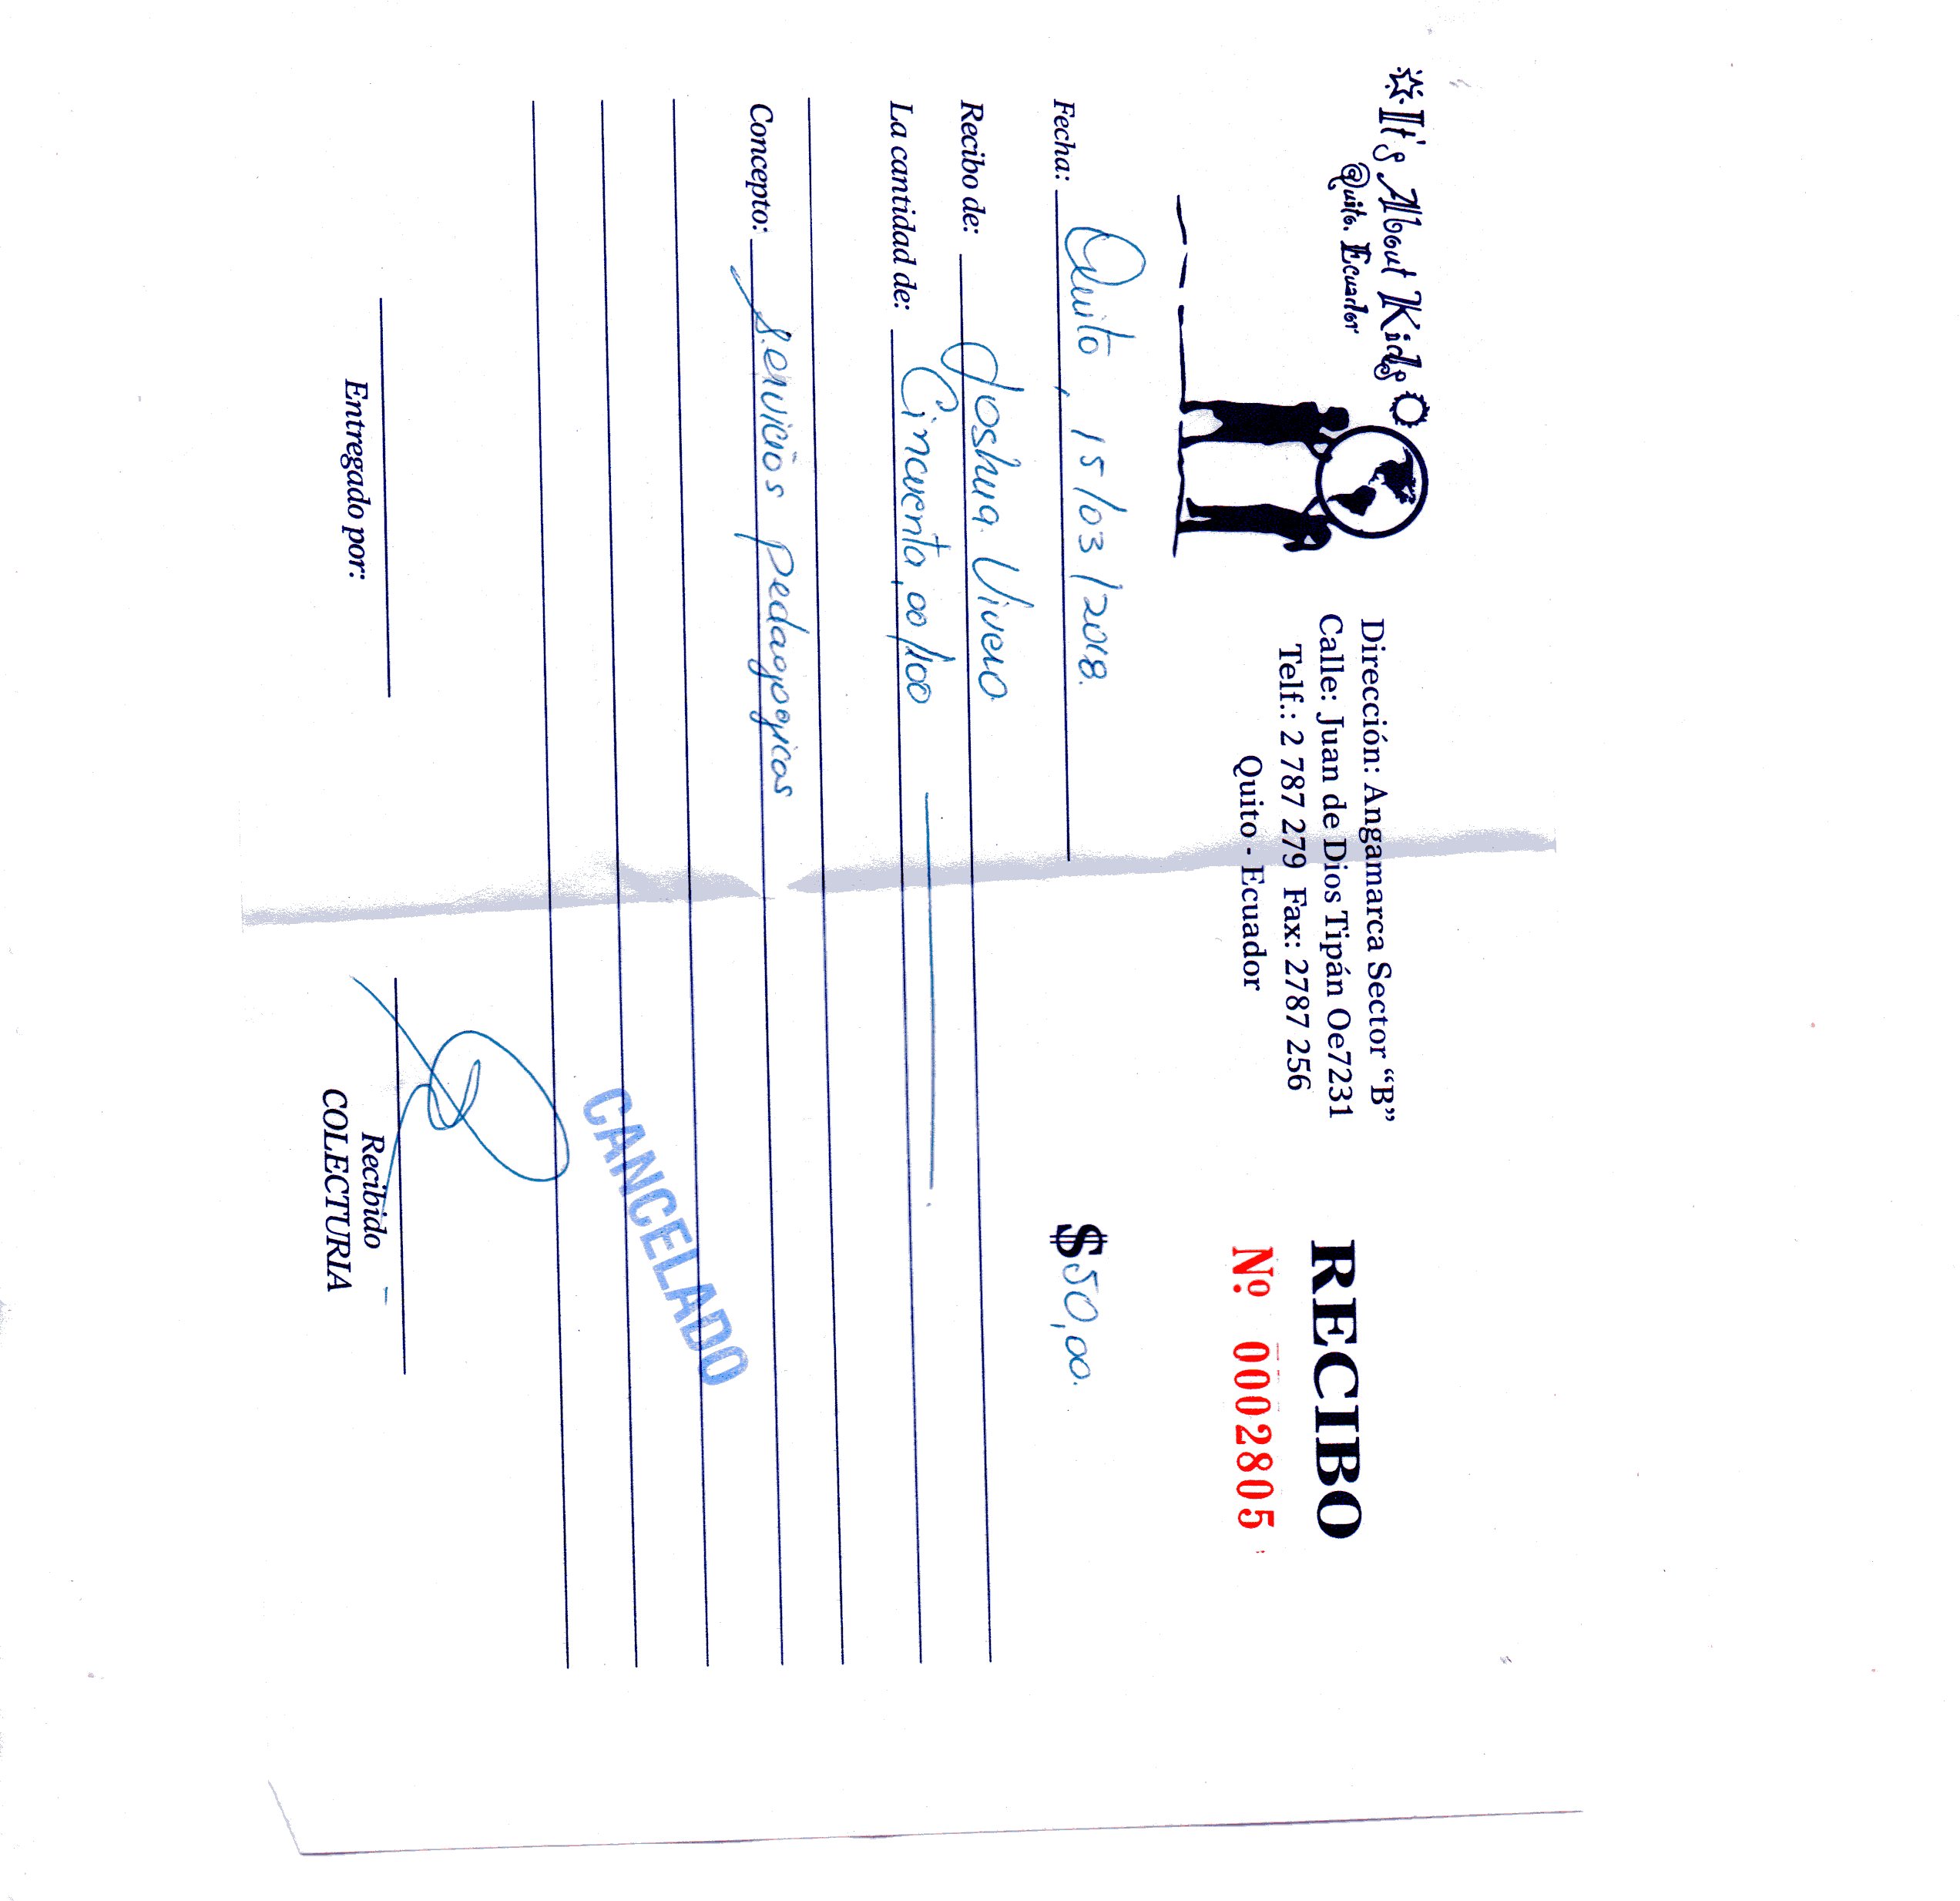 It's About Kids
Quito. Ecuador
Dirección: Angamarca Sector “B”
Calle: Juan de Dios Tipán Oe7231
Telf.: 2 787 279 Fax: 2787 256
Quito - Ecuador
RECIBO
Nº 0002805
Fecha: Quito, 15/03/2018.
$50,00.
Recibo de: Joshua Vivero
La cantidad de: Cincuenta,00/100
Concepto: Servicios pedagogicos
CANCELADO
Entregado por:
Recibido
COLECTURIA